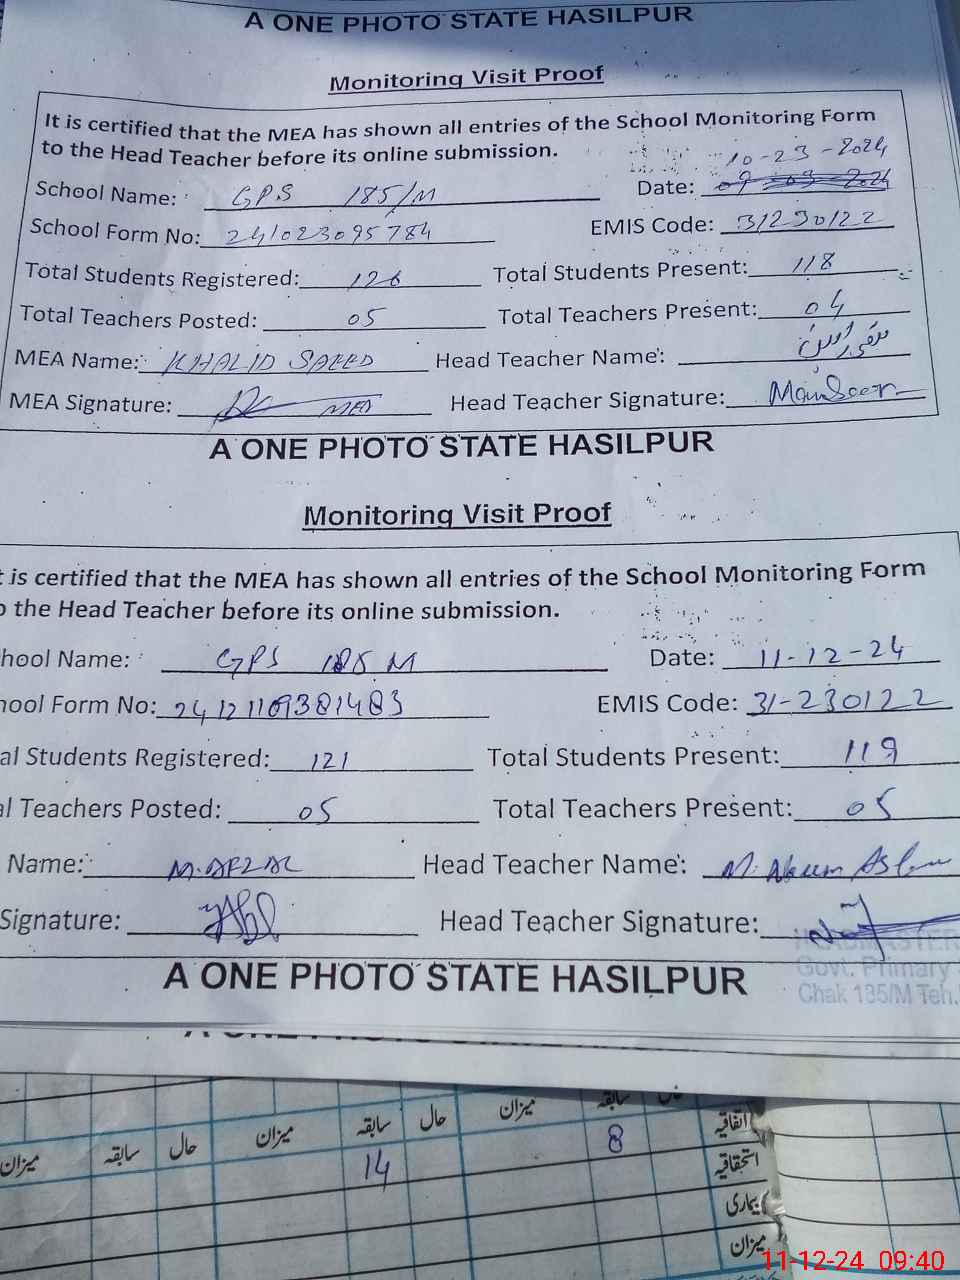 A ONE PHOTO STATE HASILPUR
Monitoring Visit Proof
It is certified that the MEA has shown all entries of the School Monitoring Form
to the Head Teacher before its online submission.
10-23-2024
School Name: GPS 185/M Date: 09 2024
School Form No: 241023095784 EMIS Code: 31230122
Total Students Registered: 126 Total Students Present: 118
Total Teachers Posted: 05 Total Teachers Present: 04
MEA Name: KHALID SAEED Head Teacher Name:
MEA Signature: MEA Head Teacher Signature:
A ONE PHOTO STATE HASILPUR
Monitoring Visit Proof
t is certified that the MEA has shown all entries of the School Monitoring Form
o the Head Teacher before its online submission.
hool Name: GPS 185 M Date: 11-12-24
hool Form No: 24121109381483 EMIS Code: 31-230122
al Students Registered: 121 Total Students Present: 119
al Teachers Posted: 05 Total Teachers Present: 05
Name: M. AFZAL Head Teacher Name: M. Naeem Aslam
Signature: Head Teacher Signature:
HEADMASTER
Govt. Primary
Chak 185/M Teh.
A ONE PHOTO STATE HASILPUR
اتفاقیہ سابقہ حال میزان حال سابقہ میزان حال سابقہ میزان
8
14
استحقاقیہ
بیماری
میزان
11-12-24 09:40